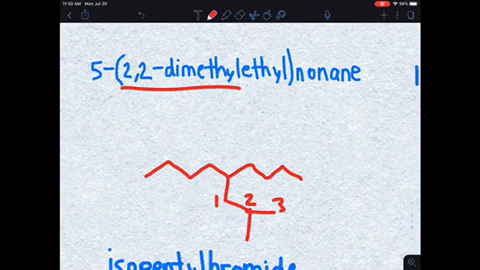 11:50 AM Mon Jul 20
99%
5-(2,2-dimethylethyl)nonane
1
1 2 3
isopentylbromide